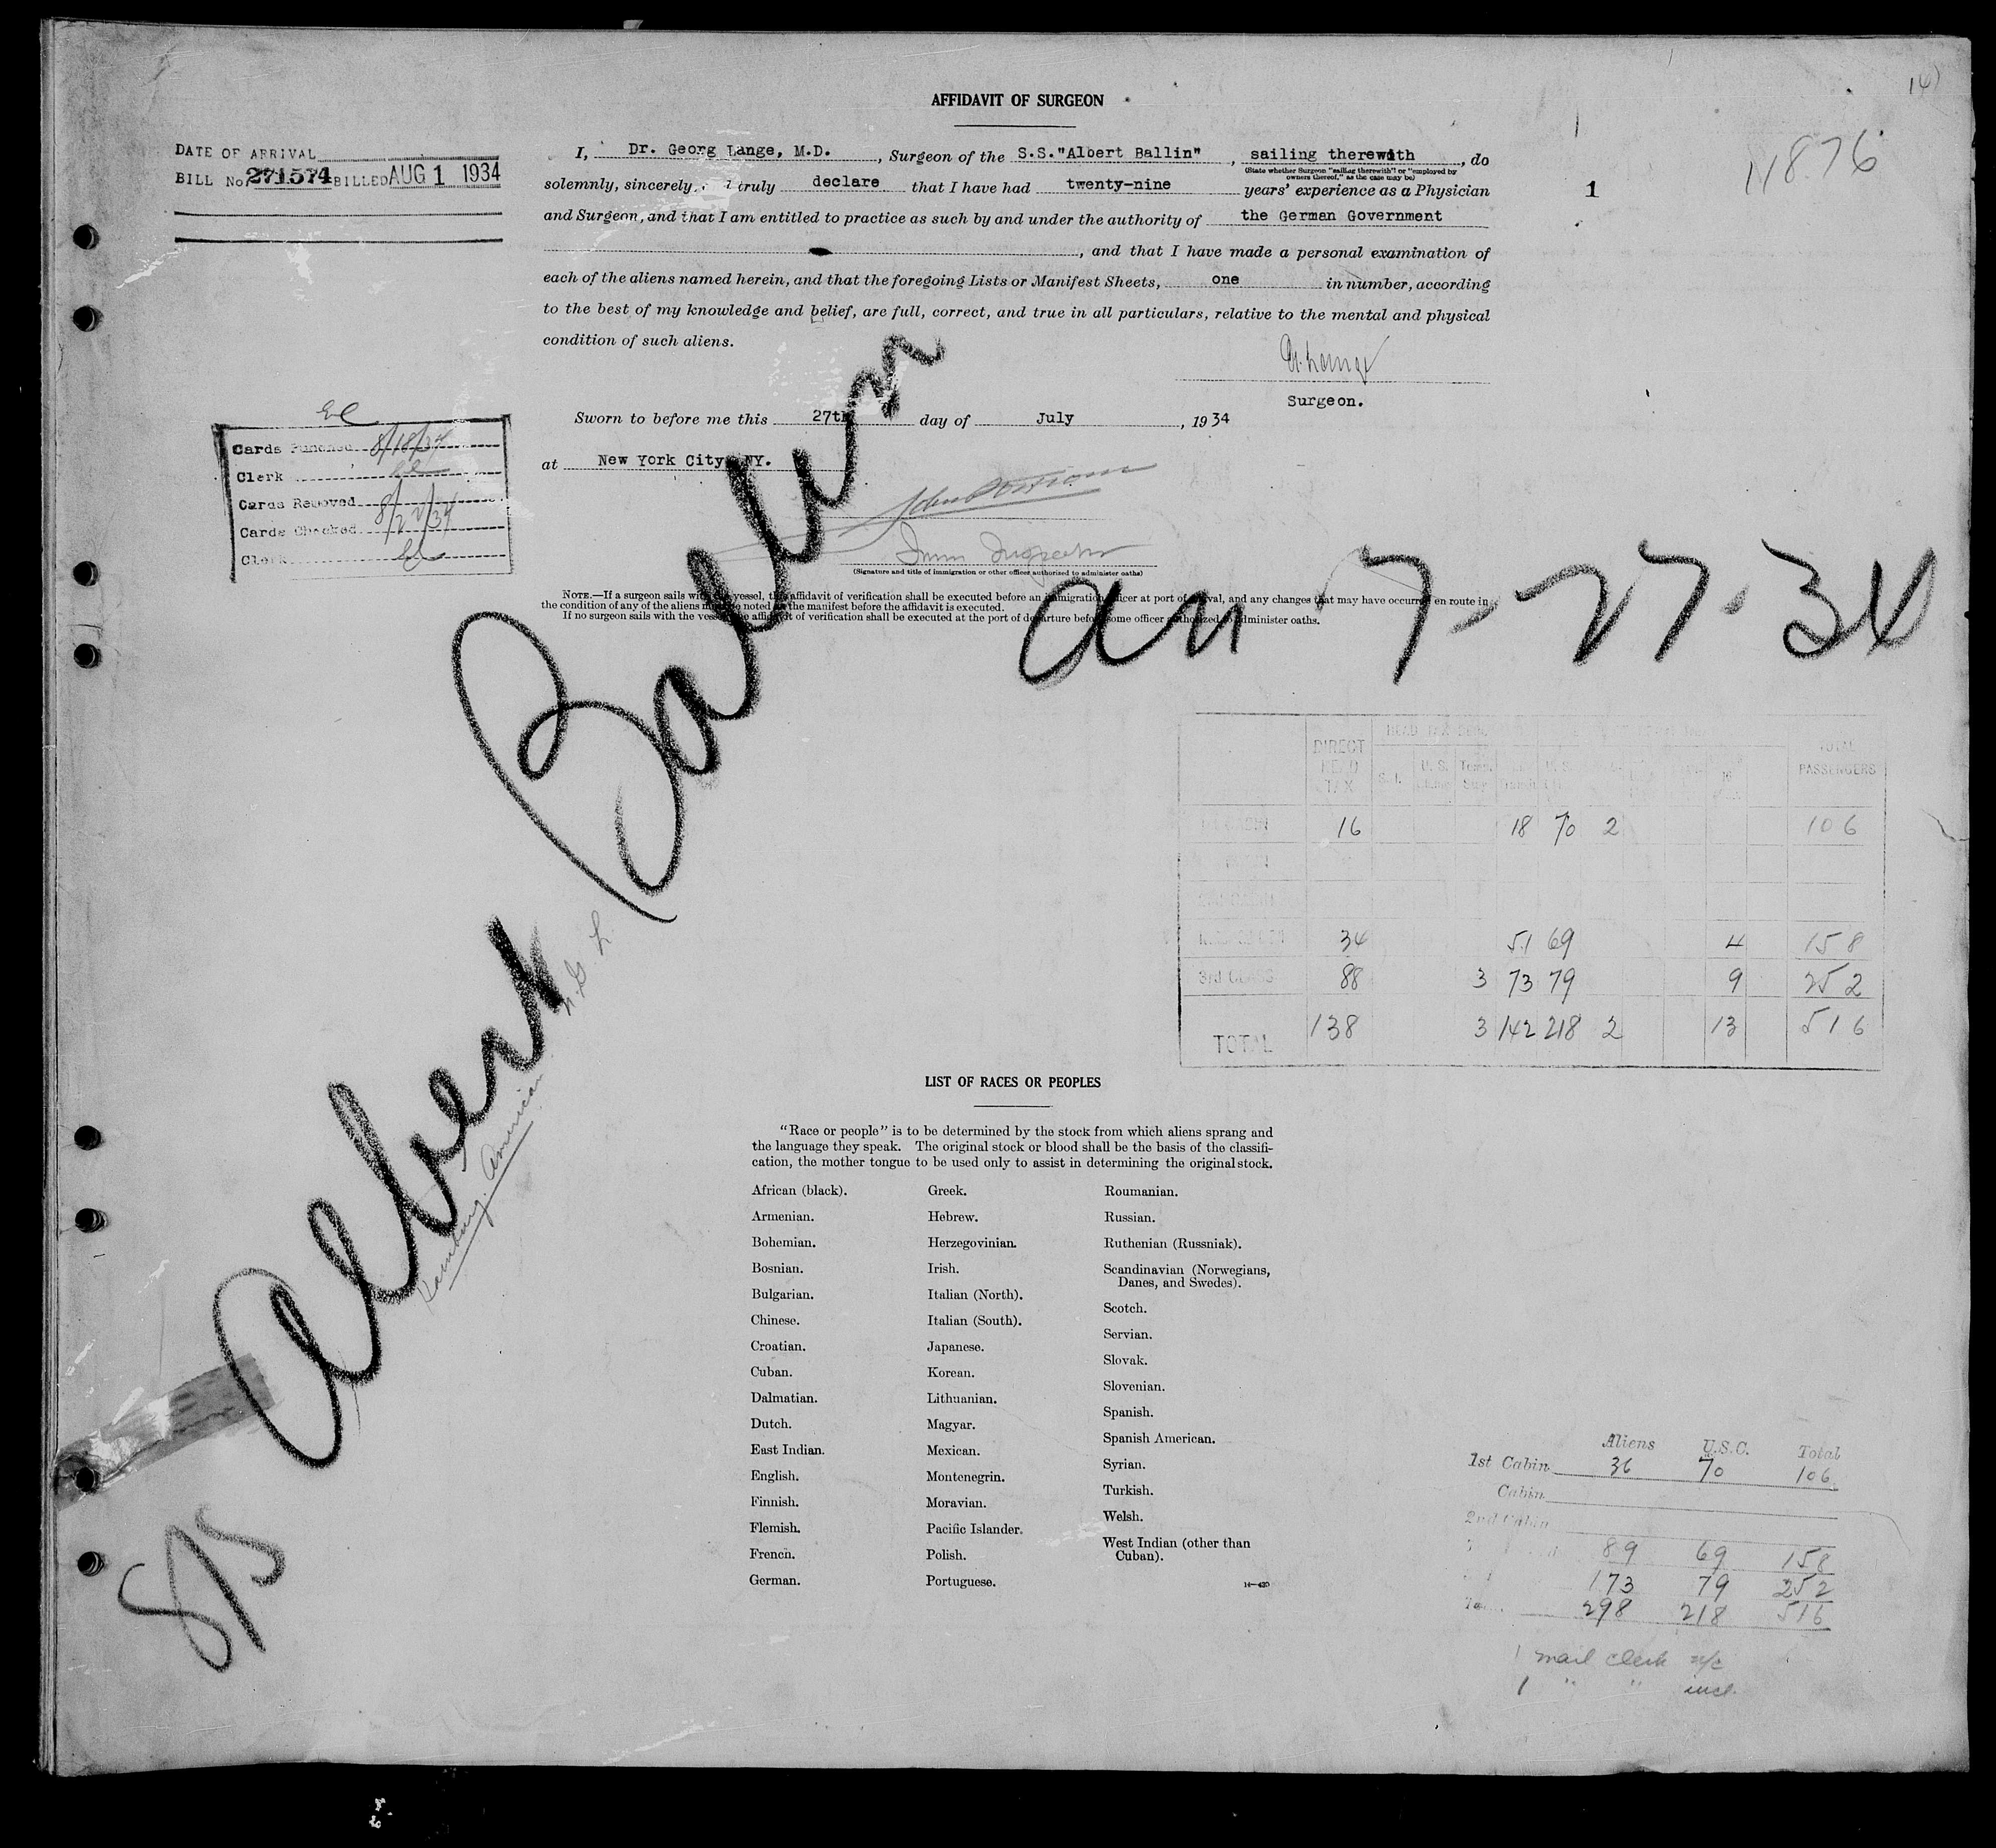 14)
AFFIDAVIT OF SURGEON
11876
1
DATE OF ARRIVAL
BILL No. 271574 BILLED AUG 1 1934
I, Dr. Georg Lange, M.D. , Surgeon of the S.S."Albert Ballin" , sailing therewith , do
(State whether Surgeon "sailing therewith" or "employed by
owners thereof," as the case may be)
solemnly, sincerely, truly declare that I have had twenty-nine years' experience as a Physician
and Surgeon, and that I am entitled to practice as such by and under the authority of the German Government
, and that I have made a personal examination of
each of the aliens named herein, and that the foregoing Lists or Manifest Sheets, one in number, according
to the best of my knowledge and belief, are full, correct, and true in all particulars, relative to the mental and physical
condition of such aliens.
Lange
Surgeon.
Sworn to before me this 27th day of July , 1934
at New York City, NY.
Imm Inspector
(Signature and title of immigration or other officer authorized to administer oaths)
Cards Punched 8/18/34
Clerk
Cards Removed
Cards Checked 8/22/34
Clerk
NOTE.—If a surgeon sails with the vessel, this affidavit of verification shall be executed before an immigration officer at port of arrival, and any changes that may have occurred en route in
the condition of any of the aliens must be noted on the manifest before the affidavit is executed.
If no surgeon sails with the vessel, the affidavit of verification shall be executed at the port of departure before some officer authorized to administer oaths.
S/S Albert Ballin
arr 7-27-34
Hamburg American
DIRECT HEAD TAX TOTAL PASSENGERS
16 18 70 2 106
34 51 69 4 158
3rd CLASS 88 3 73 79 9 252
TOTAL 138 3 142 218 2 13 516
LIST OF RACES OR PEOPLES
"Race or people" is to be determined by the stock from which aliens sprang and
the language they speak. The original stock or blood shall be the basis of the classifi-
cation, the mother tongue to be used only to assist in determining the original stock.
African (black).
Armenian.
Bohemian.
Bosnian.
Bulgarian.
Chinese.
Croatian.
Cuban.
Dalmatian.
Dutch.
East Indian.
English.
Finnish.
Flemish.
French.
German.
Greek.
Hebrew.
Herzegovinian.
Irish.
Italian (North).
Italian (South).
Japanese.
Korean.
Lithuanian.
Magyar.
Mexican.
Montenegrin.
Moravian.
Pacific Islander.
Polish.
Portuguese.
Roumanian.
Russian.
Ruthenian (Russniak).
Scandinavian (Norwegians,
Danes, and Swedes).
Scotch.
Servian.
Slovak.
Slovenian.
Spanish.
Spanish American.
Syrian.
Turkish.
Welsh.
West Indian (other than
Cuban).
14—430
Aliens U.S.C. Total
1st Cabin 36 70 106
Cabin
2nd Cabin
89 69 158
173 79 252
298 218 516
1 mail clerk n/c
1 " " incl.